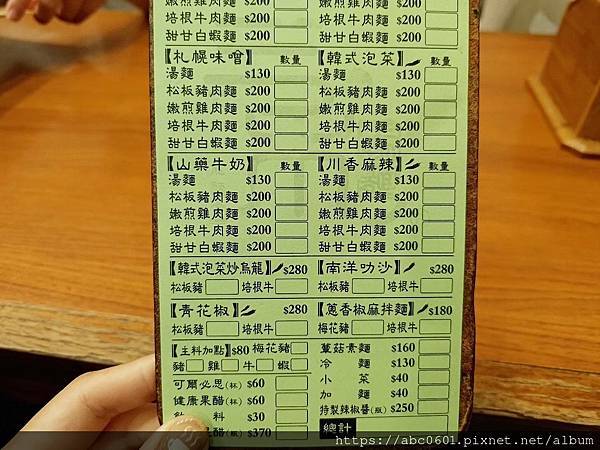 嫩煎雞肉麵 $200
培根牛肉麵 $200
甜甘白蝦麵 $200
嫩煎雞肉麵 $200
培根牛肉麵 $200
甜甘白蝦麵 $200
【札幌味噌】 數量
湯麵 $130
松板豬肉麵 $200
嫩煎雞肉麵 $200
培根牛肉麵 $200
甜甘白蝦麵 $200
【韓式泡菜】 數量
湯麵 $130
松板豬肉麵 $200
嫩煎雞肉麵 $200
培根牛肉麵 $200
甜甘白蝦麵 $200
【山藥牛奶】 數量
湯麵 $130
松板豬肉麵 $200
嫩煎雞肉麵 $200
培根牛肉麵 $200
甜甘白蝦麵 $200
【川香麻辣】 數量
湯麵 $130
松板豬肉麵 $200
嫩煎雞肉麵 $200
培根牛肉麵 $200
甜甘白蝦麵 $200
【韓式泡菜炒烏龍】 $280
松板豬 培根牛
【南洋叻沙】 $280
松板豬 培根牛
【青花椒】 $280
松板豬 培根牛
【蔥香椒麻拌麵】 $180
梅花豬 培根牛
【主料加點】 $80 梅花豬
豬 雞 牛 蝦
可爾必思(杯) $60
健康果醋(杯) $60
飲料 $30
果醋(瓶) $370
蕈菇素麵 $160
冷麵 $130
小菜 $40
加麵 $40
特製辣椒醬(瓶) $250
總計
https://abc0601.pixnet.net/album